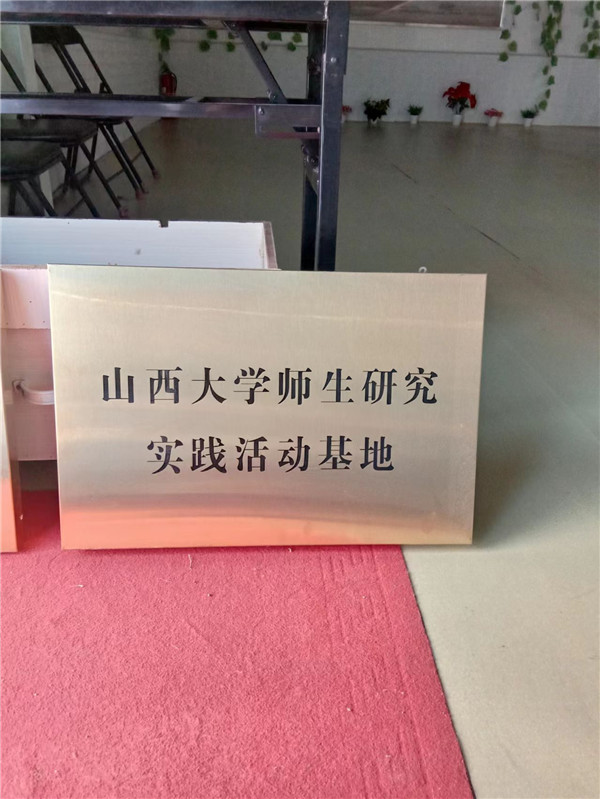 山西大学师生研究
实践活动基地